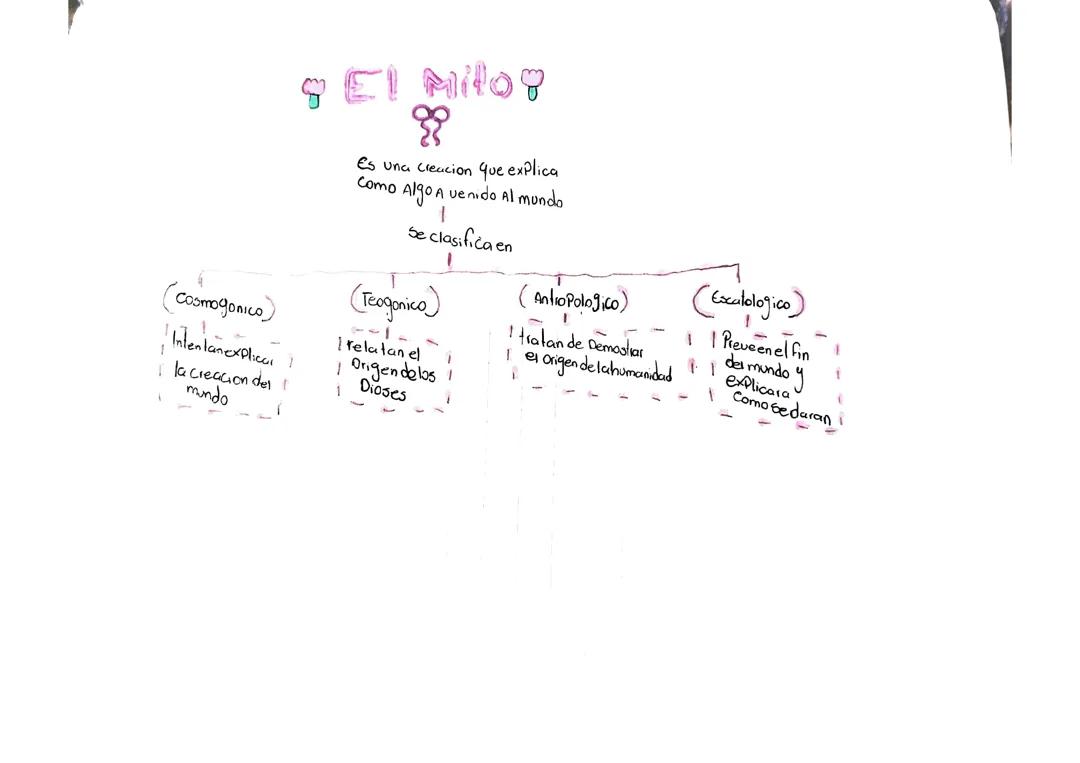 El Mito
Es una creacion que explica
Como Algo A venido Al mundo
Se clasifica en
(Cosmogonico)
Intentan explicar
la creacion del
mundo
(Teogonico)
relatan el
Origen de los
Dioses
(Antropologico)
tratan de Demostrar
el origen de la humanidad
(Escatologico)
Preveen el fin
del mundo y
explicara
Como se daran